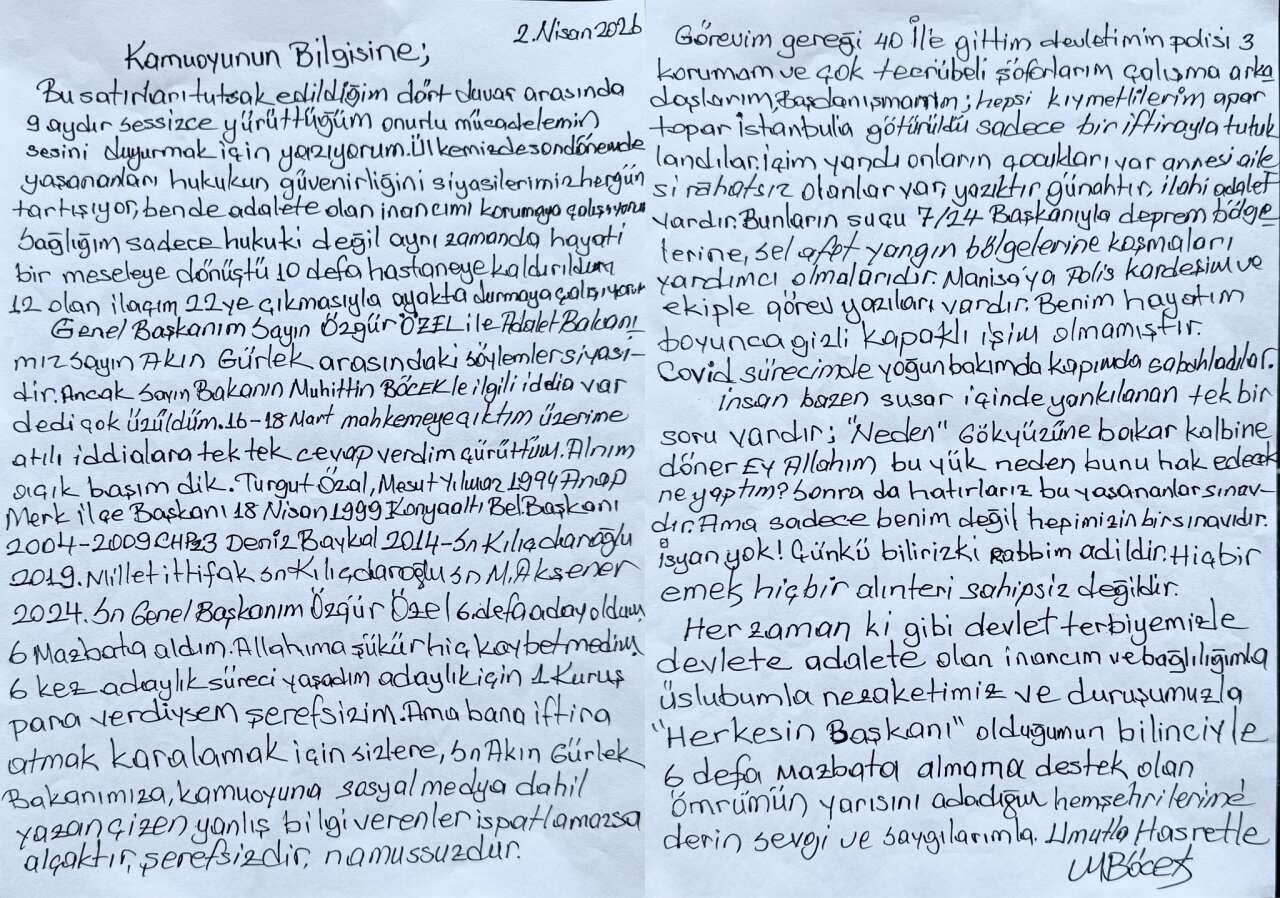 2.Nisan 2026
Kamuoyunun Bilgisine;
Bu satırları tutsak edildiğim dört duvar arasında
9 aydır sessizce yürüttüğüm onurlu mücadelemin
sesini duyurmak için yazıyorum.Ülkemizde son dönemde
yaşananları hukukun güvenirliğini siyasilerimiz hergün
tartışıyor, bende adalete olan inancımı korumaya çalışıyorum
Sağlığım sadece hukuki değil aynı zamanda hayati
bir meseleye dönüştü 10 defa hastaneye kaldırıldım
12 olan ilaçım 22 ye çıkmasıyla ayakta durmaya çalışıyorum
Genel Başkanım Sayın Özgür ÖZEL ile Adalet Bakanı
mız sayın Akın Gürlek arasındaki söylemler siyasi-
dir. Ancak Sayın Bakanın Muhittin BÖCEK le ilgili iddia var
dedi çok üzüldüm. 16-18 Mart mahkemeye çıktım üzerime
atılı iddialara tek tek cevap verdim çürüttüm. Alnım
açık başım dik. Turgut Özal, Mesut Yılmaz 1994 Anap
Merk ilçe Başkanı 18 Nisan 1999 Konyaaltı Bel.Başkanı
2004-2009 CHP Deniz Baykal 2014-Sn Kılıçdaroğlu
2019. Millet ittifak Sn Kılıçdaroğlu Sn M. Akşener
2024. Sn Genel Başkanım Özgür Özel 6.defa aday oldum
6 Mazbata aldım. Allahıma şükür hiç kaybetmedim
6 kez adaylık süreci yaşadım adaylık için 1 Kuruş
para verdiysem şerefsizim. Ama bana iftira
atmak karalamak için sizlere, Sn Akın Gürlek
Bakanımıza, kamuoyuna sosyal medya dahil
yazan çizen yanlış bilgi verenler ispatlamazsa
alçaktır, şerefsizdir, namussuzdur.
Görevim gereği 40 İl'e gittim devletimin polisi 3
korumam ve çok tecrübeli şöforlarım çalışma arka
daşlarım, Başdanışmanım; hepsi kıymetlilerim apar
topar istanbula götürüldü sadece bir iftirayla tutuk
landılar. içim yandı onların çocukları var annesi aile
si rahatsız olanlar var, yazıktır günahtır, ilahi adalet
vardır. Bunların suçu 7/24 Başkanıyla deprem bölge
lerine, sel afet yangın bölgelerine koşmaları
yardımcı olmalarıdır. Manisa'ya Polis kardeşim ve
ekiple görev yazıları vardır. Benim hayatım
boyunca gizli kapaklı işim olmamıştır.
Covid sürecimde yoğun bakımda kapımda sabahladılar.
insan bazen susar içinde yankılanan tek bir
soru vardır; "Neden" Gökyüzüne bakar kalbine
döner Ey Allahım bu yük neden bunu hak edecek
ne yaptım? Sonra da hatırlarız bu yaşananlar sınav-
dır. Ama sadece benim değil hepimizin bir sınavıdır.
isyan yok! Çünkü biliriz ki Rabbim adildir. Hiçbir
emek hiçbir alınteri sahipsiz değildir.
Her zaman ki gibi devlet terbiyemizle
devlete adalete olan inancım ve bağlılığımla
üslubumla nezaketimiz ve duruşumuzla
"Herkesin Başkanı" olduğumun bilinciyle
6 defa Mazbata almama destek olan
Ömrümün yarısını adadığım hemşehrilerime
derin sevgi ve saygılarımla. Umutla Hasretle
MBöcek